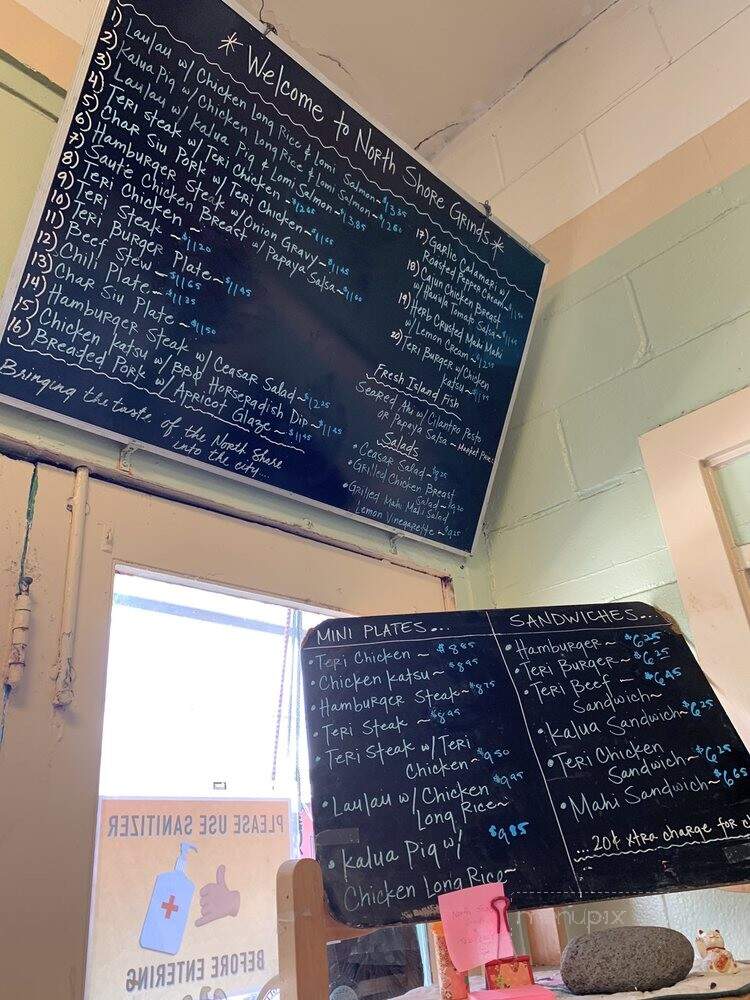 * Welcome to North Shore Grinds *
1) Laulau w/ Chicken Long Rice & Lomi Salmon ~ $13.85
2) Kalua Pig w/ Chicken Long Rice & Lomi Salmon ~ $12.60
3) Laulau w/ Kalua Pig & Lomi Salmon ~ $13.85
4) Teri Steak w/ Teri Chicken ~ $12.60
5) Char Siu Pork w/ Teri Chicken ~
6) Hamburger Steak w/ Onion Gravy ~ $11.45
7) Sauté Chicken Breast w/ Papaya Salsa ~ $11.60
8) Teri Chicken ~
9) Teri Steak ~ $11.20
10) Teri Burger Plate ~ $11.45
11) Beef Stew ~ $11.65
12) Chili Plate ~ $11.35
13) Char Siu Plate ~ $11.50
14) Hamburger Steak w/ Ceasar Salad ~ $12.25
15) Chicken Katsu w/ BBQ Horseradish Dip ~ $11.45
16) Breaded Pork w/ Apricot Glaze ~ $11.45
Bringing the taste of the North Shore
into the city...
17) Garlic Calamari w/
Roasted Pepper Cream ~ $11.50
18) Cajun Chicken Breast
w/ Hauula Tomato Salsa ~ $11.45
19) Herb Crusted Mahi Mahi
w/ Lemon Cream ~
20) Teri Burger w/ Chicken
Katsu ~ $11.95
Fresh Island Fish
Seared Ahi w/ Cilantro Pesto
or Papaya Salsa ~ Market Price
Salads
• Ceasar Salad ~
• Grilled Chicken Breast
Salad ~ $9.20
• Grilled Mahi Mahi Salad
Lemon Vinegarette ~ $9.25
MINI PLATES...
• Teri Chicken ~ $8.85
• Chicken Katsu ~ $8.95
• Hamburger Steak ~ $8.75
• Teri Steak ~ $8.95
• Teri Steak w/ Teri
Chicken ~ $9.50
• Laulau w/ Chicken
Long Rice ~ $9.95
• Kalua Pig w/
Chicken Long Rice ~ $9.85
SANDWICHES...
• Hamburger ~ $6.25
• Teri Burger ~ $6.25
• Teri Beef
Sandwich ~ $6.45
• Kalua Sandwich ~ $6.25
• Teri Chicken
Sandwich ~ $6.25
• Mahi Sandwich ~ $6.65
...20¢ xtra charge for
PLEASE USE SANITIZER
BEFORE ENTERING
menupix